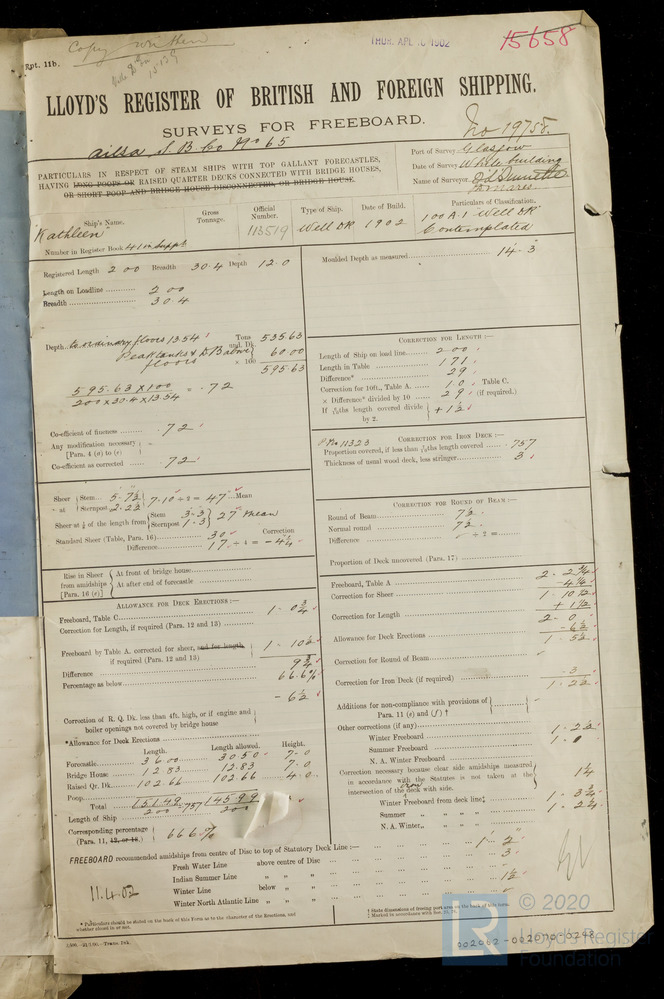 Rpt. 11b.
Copy written
THUR. APL 10 1902
15658
LLOYD'S REGISTER OF BRITISH AND FOREIGN SHIPPING.
SURVEYS FOR FREEBOARD.
No 19758.
Ailsa S. B. Co No 65
PARTICULARS IN RESPECT OF STEAM SHIPS WITH TOP GALLANT FORECASTLES,
HAVING LONG POOPS OR RAISED QUARTER DECKS CONNECTED WITH BRIDGE HOUSES,
OR SHORT POOP AND BRIDGE HOUSE DISCONNECTED, OR BRIDGE HOUSE.
Port of Survey Glasgow
Date of Survey While building
Name of Surveyor
Ship's Name. Gross Tonnage. Official Number. Type of Ship. Date of Build. Particulars of Classification.
"Kathleen" 113519 Well Dk 1902 100 A.1 Well Dk Contemplated
Number in Register Book 41 in Suppt
Registered Length 200 Breadth 30.4 Depth 12.0
Moulded Depth as measured 14.3
Length on Loadline 200
Breadth 30.4
Depth to ordinary floors 13.54 Tons und. Dk. 535.63
Peak tanks & D B above floors 60.00
× 100 595.63
595.63 × 100 = .72
200 × 30.4 × 13.54
Co-efficient of fineness .72
Any modification necessary [Para. 4 (a) to (e)]
Co-efficient as corrected .72
CORRECTION FOR LENGTH :—
Length of Ship on load line 200
Length in Table 171
Difference 29
Correction for 10ft., Table A. 1.0 Table C,
× Difference* divided by 10 2.9 (if required.)
If 6/10ths length covered divide by 2. + 1½
No 11323
CORRECTION FOR IRON DECK :—
Proportion covered, if less than 7/10ths length covered .757
Thickness of usual wood deck, less stringer 3
Sheer at Stem 5.7½ 7.10 ÷ 2 = 47 Mean
Sternpost 2.2½
Sheer at ⅛ of the length from Stem 3-3 27 mean
Sternpost 1.3
Standard Sheer (Table, Para. 16) 30 Correction
Difference 17 ÷ 4 = -4¼
CORRECTION FOR ROUND OF BEAM :—
Round of Beam 7½
Normal round 7½
Difference ÷ 2 =
Proportion of Deck uncovered (Para. 17)
Rise in Sheer from amidships [Para. 16 (e)]
At front of bridge house
At after end of forecastle
ALLOWANCE FOR DECK ERECTIONS :—
Freeboard, Table C. 1 . 0¾
Correction for Length, if required (Para. 12 and 13)
Freeboard by Table A. corrected for sheer, and for length, if required (Para. 12 and 13) 1 . 10½
Difference 9¾
Percentage as below 66.6%
- 6½
Correction of R. Q. Dk. less than 4ft. high, or if engine and boiler openings not covered by bridge house
*Allowance for Deck Erections
Length. Length allowed. Height.
Forecastle 36.00 30.50 7-0
Bridge House 12.83 12.83 7-0
Raised Qr. Dk. 102.66 102.66 4.0
Poop
Total 151.49 = .757 145.99
Length of Ship 200 200
Corresponding percentage (Para. 11, 12, or 13.) 66.6%
Freeboard, Table A 2 . 2¾
Correction for Sheer -4¼
1 . 10½
Correction for Length + 1½
2 . 0
Allowance for Deck Erections -6½
1 . 5½
Correction for Round of Beam
Correction for Iron Deck (if required) -3
1 . 2½
Additions for non-compliance with provisions of Para. 11 (e) and (f) †
Other corrections (if any)
Winter Freeboard 1 . 2½
Summer Freeboard 1 . 0
N. A. Winter Freeboard
Correction necessary because clear side amidships measured in accordance with the Statutes is not taken at the intersection of the iron deck with side. 1¼
Winter Freeboard from deck line‡ 1 . 3¾
Summer " " " " 1 . 2¼
N. A. Winter " " " "
FREEBOARD recommended amidships from centre of Disc to top of Statutory Deck Line :— 1' 2"
Fresh Water Line above centre of Disc 3
Indian Summer Line " " "
Winter Line below " " 1½
Winter North Atlantic Line " " "
11.4.02
* Particulars should be stated on the back of this Form as to the character of the Erections, and whether closed in or not.
† State dimensions of freeing port area on the back of this form.
© 2020
Lloyd's Register
Foundation
LR
002062-002070-0248